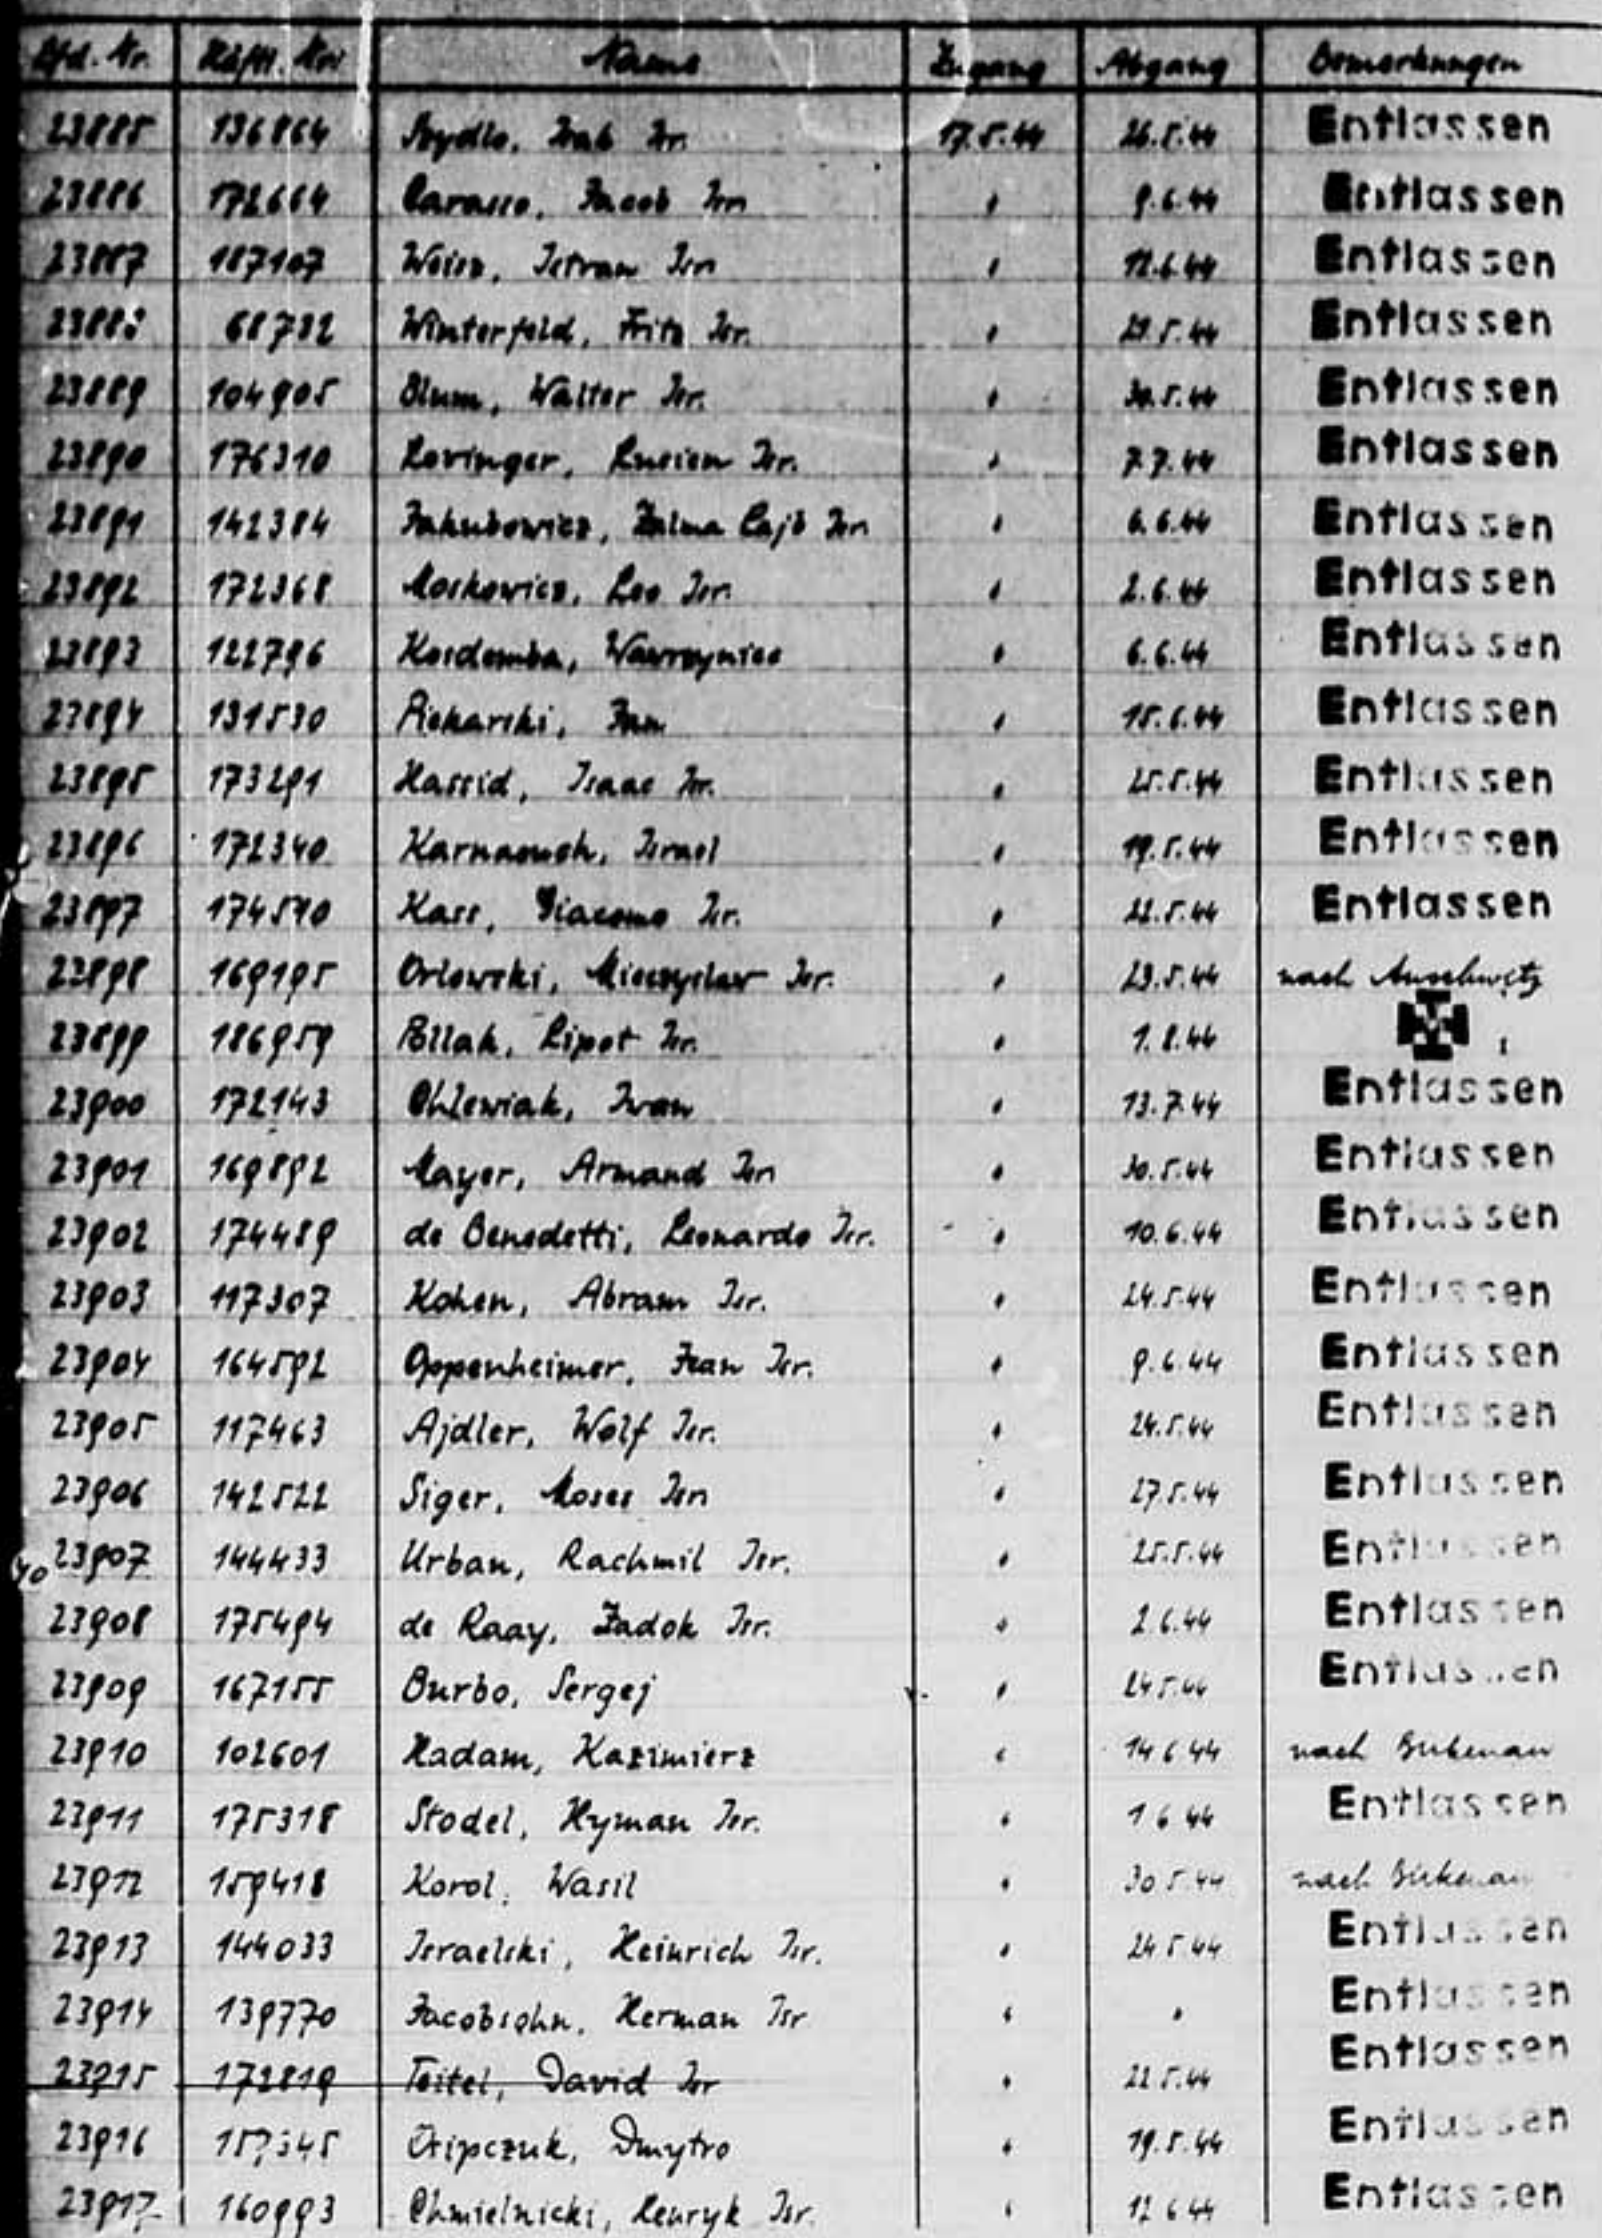 Lfd. Nr. Häftl. Nr. Name Zugang Abgang Bemerkungen
23885 136864 Isr. 17.5.44 26.5.44 Entlassen
23886 172664 Carasso, Jacob Isr. " 9.6.44 Entlassen
23887 187107 Isr. " 12.6.44 Entlassen
23888 68732 Winterfeld, Fritz Isr. " 29.5.44 Entlassen
23889 104905 Blum, Walter Isr. " 30.5.44 Entlassen
23890 176310 Lovinger, Lucien Isr. " 7.7.44 Entlassen
23891 142384 Jakubowicz, Lajb Isr. " 6.6.44 Entlassen
23892 172368 Moskowicz, Leo Isr. " 2.6.44 Entlassen
23893 122796 Wawrzyniec " 6.6.44 Entlassen
23894 131530 Piekarski, Jan " 15.6.44 Entlassen
23895 173291 Hassid, Isaac Isr. " 25.5.44 Entlassen
23896 172340 Karnaouch, Israel " 19.5.44 Entlassen
23897 174540 Kass, Giacomo Isr. " 22.5.44 Entlassen
23898 169195 Orlowski, Mieczyslaw Isr. " 23.5.44 nach Auschwitz
23899 186959 Pollak, Lipot Isr. " 1.8.44
23900 172143 Chlewiak, Iwan " 13.7.44 Entlassen
23901 169892 Mayer, Armand Isr. " 30.5.44 Entlassen
23902 174489 de Benedetti, Leonardo Isr. " 10.6.44 Entlassen
23903 117307 Kohen, Abram Isr. " 24.5.44 Entlassen
23904 164592 Oppenheimer, Jean Isr. " 9.6.44 Entlassen
23905 117463 Ajdler, Wolf Isr. " 24.5.44 Entlassen
23906 142522 Siger, Moses Isr. " 27.5.44 Entlassen
23907 144433 Urban, Rachmil Isr. " 25.5.44 Entlassen
23908 175494 de Raay, Zadok Isr. " 2.6.44 Entlassen
23909 167155 Burbo, Sergej " 24.5.44 Entlassen
23910 102601 Hadam, Kazimierz " 14.6.44 nach Birkenau
23911 175318 Stodel, Hyman Isr. " 1.6.44 Entlassen
23912 159418 Korol, Wasil " 30.5.44 nach Birkenau
23913 144033 Israelski, Heinrich Isr. " 24.5.44 Entlassen
23914 139770 Jacobsohn, Herman Isr " " Entlassen
23915 172819 Teitel, David Isr " 22.5.44 Entlassen
23916 157345 Osipczuk, Dmytro " 19.5.44 Entlassen
23917 160993 Chmielnicki, Henryk Isr. " 12.6.44 Entlassen